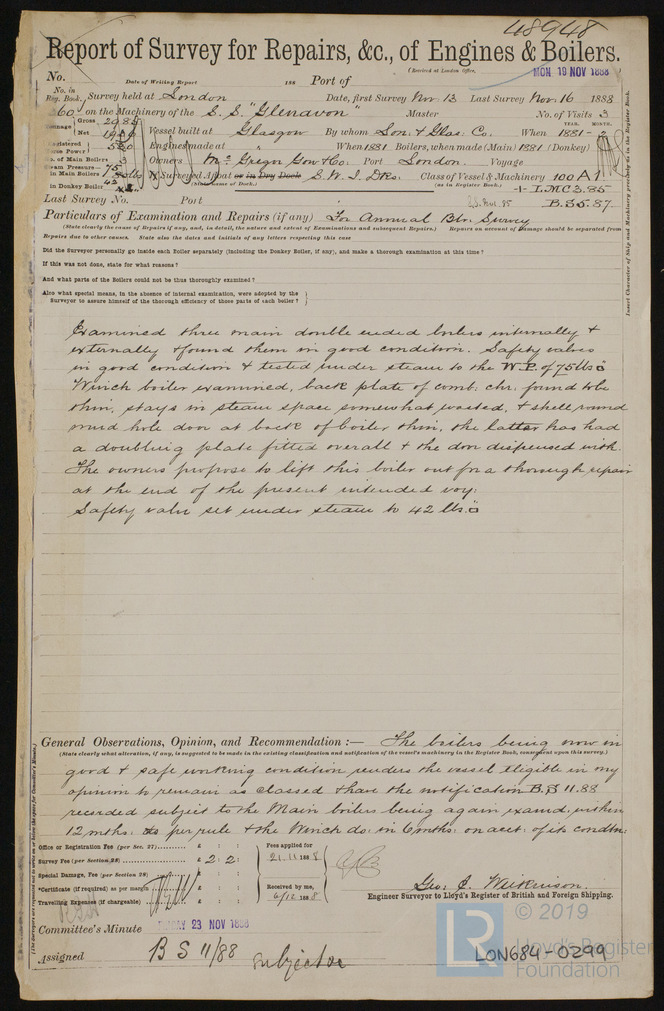 48948
Report of Survey for Repairs, &c., of Engines & Boilers.
(Received at London Office,
MON 19 NOV 1888
No. Date of Writing Report 188 Port of
No. in Reg. Book. Survey held at London Date, first Survey Nov 13 Last Survey Nov. 16 1888
60 on the Machinery of the S. S. "Glenavon" Master No. of Visits 3
Gross 2985
Net 19
Vessel built at Glasgow By whom Lon. & Glas. Co. When 1881-2
YEAR. MONTH.
Registered Horse Power 5 0 Engines made at " When 1881 Boilers, when made (Main) 1881 (Donkey)
No. of Main Boilers 3 Owners McGregor Gow & Co. Port London. Voyage
Steam Pressure in Main Boilers 75 lbs If Surveyed Afloat or in Dry Dock S. W. I. Dks. Class of Vessel & Machinery 100 A 1
(State name of Dock.) (as in Register Book.)
in Donkey Boiler 42 + L.M.C 3.85
Last Survey No. Port B.S 5.87.
Particulars of Examination and Repairs (if any) For Annual Blr. Survey
(State clearly the cause of Repairs if any, and, in detail, the nature and extent of Examinations and subsequent Repairs.) Repairs on account of Damage should be separated from
Repairs due to other causes. State also the dates and initials of any letters respecting this case
Did the Surveyor personally go inside each Boiler separately (including the Donkey Boiler, if any), and make a thorough examination at this time?
If this was not done, state for what reasons?
And what parts of the Boilers could not be thus thoroughly examined?
Also what special means, in the absence of internal examination, were adopted by the
Surveyor to assure himself of the thorough efficiency of those parts of each boiler?
Insert Character of Ship and Machinery precisely as in the Register Book.
Examined three main double ended boilers internally &
externally & found them in good condition. Safety valves
in good condition & tested under steam to the W.P. of 75 lbs □"
Winch boiler examined, back plate of comb. chr. found to be
thin, stays in steam space somewhat wasted, & shell round
mud hole door at back of boiler thin, the latter has had
a doubling plate fitted over all & the door dispensed with.
The owners propose to lift this boiler out for a thorough repair
at the end of the present intended voy.
Safety valve set under steam to 42 lbs. □"
General Observations, Opinion, and Recommendation :— The boilers being now in
(State clearly what alteration, if any, is suggested to be made in the existing classification and notification of the vessel's machinery in the Register Book, consequent upon this survey.)
good & safe working condition renders the vessel eligible in my
opinion to remain as classed & have the notification B.S 11.88
recorded subject to the Main boilers being again examd. within
12 mths: as per rule & the Winch do: in 6 mths: on acct: of its condtn:
Office or Registration Fee (per Sec. 27) £ : :
Survey Fee (per Section 28) £ 2 : 2 :
Special Damage, Fee (per Section 28) £ : :
*Certificate (if required) as per margin £ : :
Travelling Expenses (if chargeable) £ : :
Fees applied for
21.11 1888
Received by me,
6/12 1888
Geo: J. Wilkinson.
Engineer Surveyor to Lloyd's Register of British and Foreign Shipping.
Committee's Minute FRIDAY 23 NOV 1888
Assigned B S 11/88 subject &c
© 2019
LR
Lloyd's Register
Foundation
LON684-0299